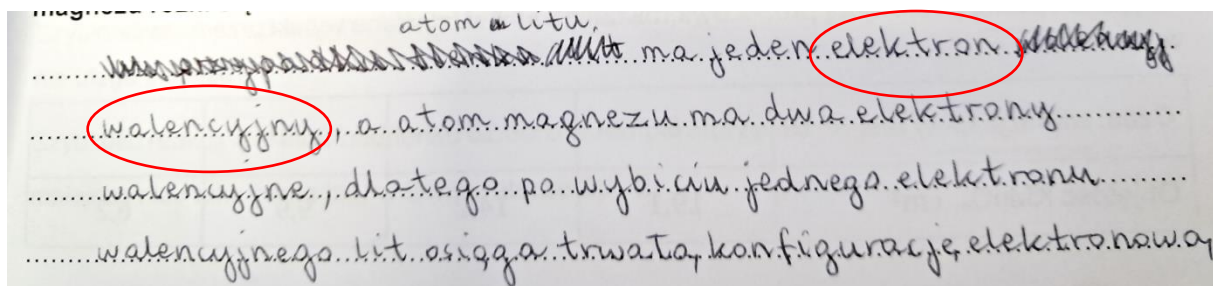 atom litu
ma jeden elektron
walencyjny, a atom magnezu ma dwa elektrony
walencyjne, dlatego po wybiciu jednego elektronu
walencyjnego lit osiąga trwałą konfigurację elektronową